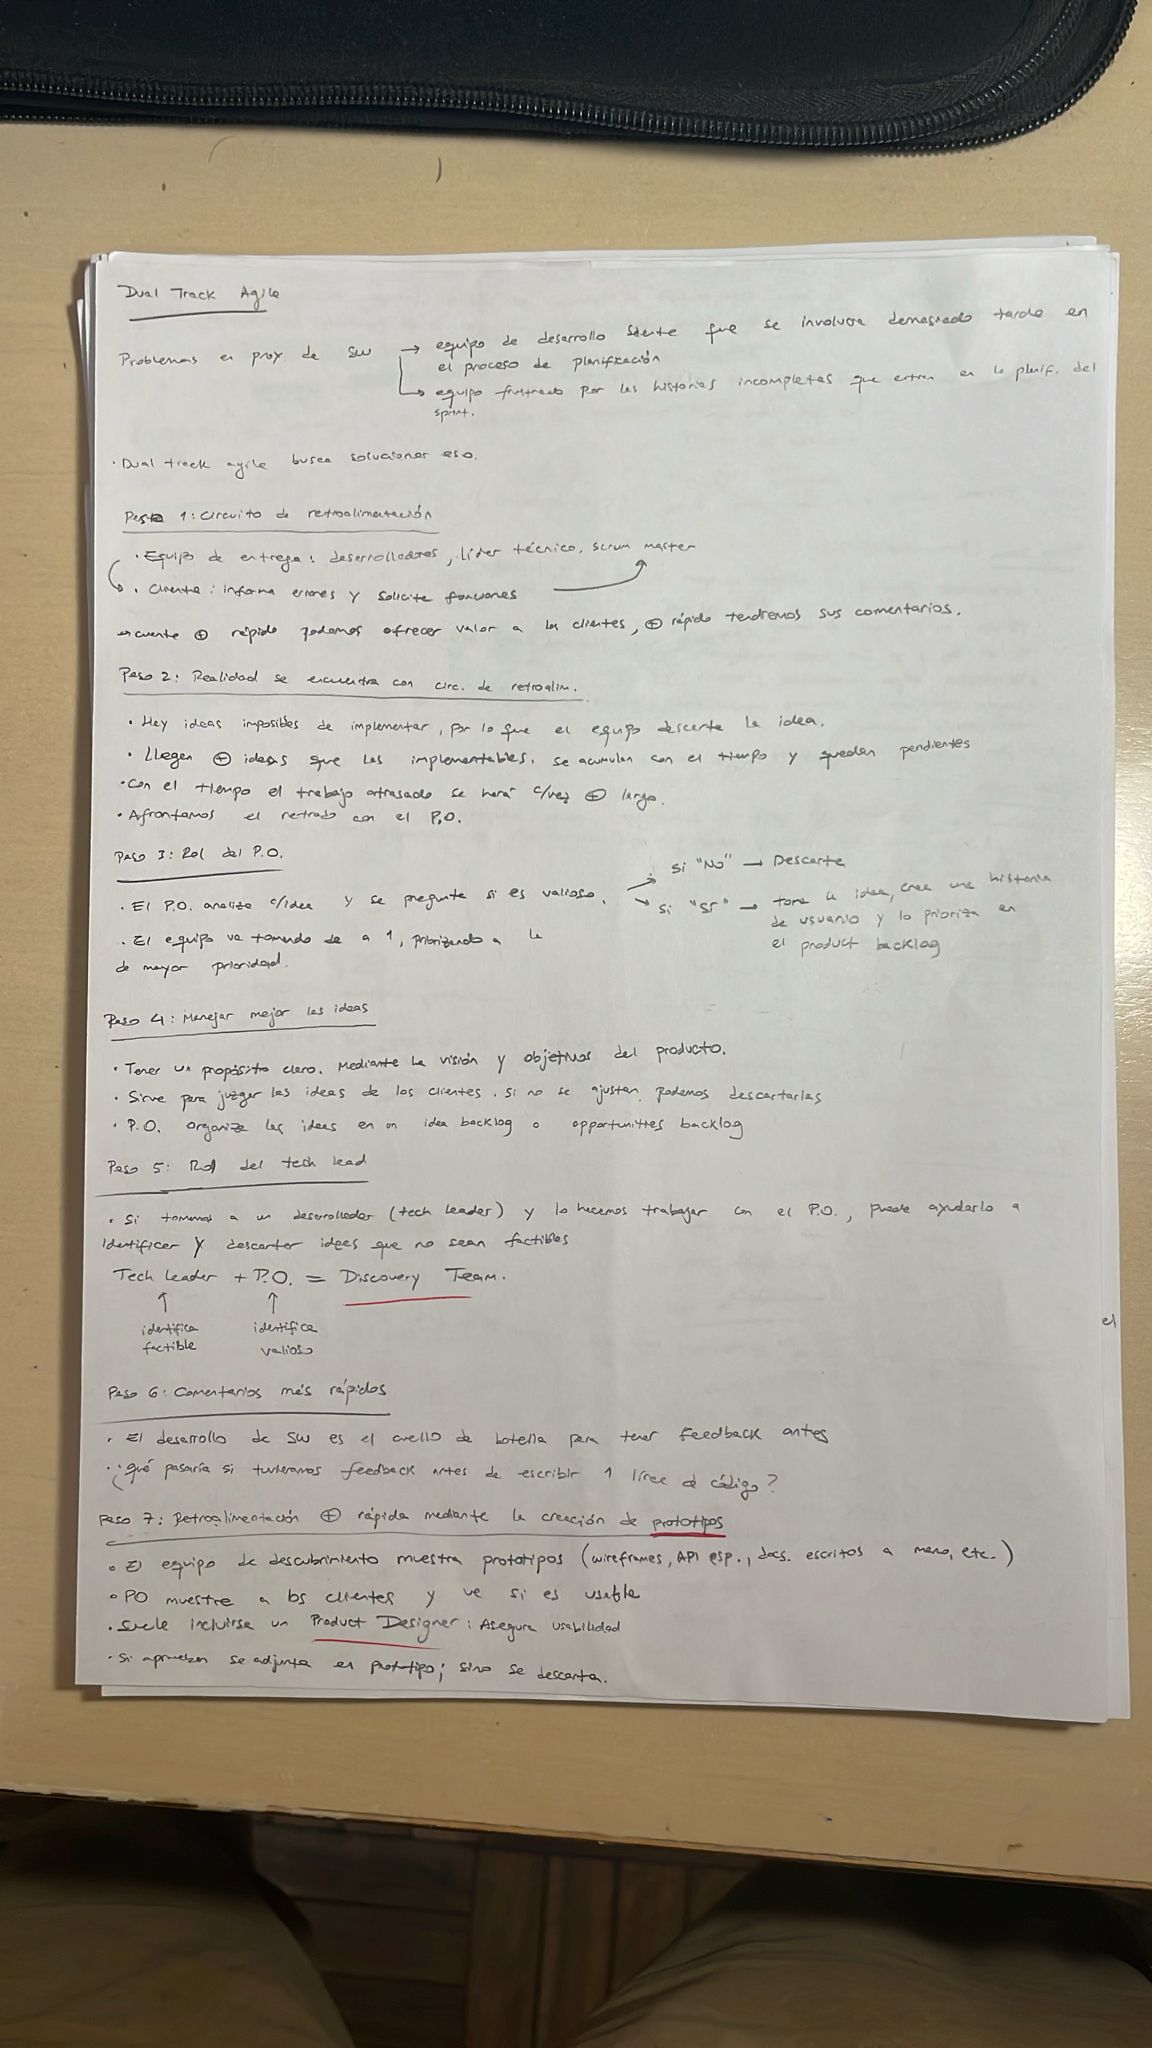 Dual Track Agile
Problemas en proy de SW → equipo de desarrollo siente que se involucra demasiado tarde en
el proceso de planificación
→ equipo frustrado por las historias incompletas que entran en la planif. del
sprint.
· Dual track agile busca solucionar eso.
Paso 1: Circuito de retroalimentación
· Equipo de entrega: desarrolladores, líder técnico, scrum master
· Cliente: informa errores y solicita funciones
en cuanto ⊕ rápido podamos ofrecer valor a los clientes, ⊕ rápido tendremos sus comentarios.
Paso 2: Realidad se encuentra con circ. de retroalim.
· Hay ideas imposibles de implementar, por lo que el equipo descarta la idea.
· Llegan ⊕ ideas que las implementables. se acumulan con el tiempo y quedan pendientes
· Con el tiempo el trabajo atrasado se hará c/vez ⊕ largo.
· Afrontamos el retraso con el P.O.
Paso 3: Rol del P.O.
· El P.O. analiza c/idea y se pregunta si es valioso.
si "No" → Descarta
si "Sí" → toma la idea, crea una historia
de usuario y lo prioriza en
el product backlog
· El equipo va tomando de a 1, priorizando a la
de mayor prioridad.
Paso 4: Manejar mejor las ideas
· Tener un propósito claro. Mediante la visión y objetivos del producto.
· Sirve para juzgar las ideas de los clientes. si no se ajustan podemos descartarlas
· P.O. organiza las ideas en un idea backlog o opportunities backlog
Paso 5: Rol del tech lead
· Si tomamos a un desarrollador (tech leader) y lo hacemos trabajar con el P.O., puede ayudarlo a
identificar y descartar ideas que no sean factibles
Tech leader + P.O. = Discovery Team.
↑ ↑
identifica identifica
factible valioso
el
Paso 6: Comentarios más rápidos
· El desarrollo de SW es el cuello de botella para tener feedback antes
· ¿qué pasaría si tuvieramos feedback antes de escribir 1 línea de código?
Paso 7: Retroalimentación ⊕ rápida mediante la creación de prototipos
· El equipo de descubrimiento muestra prototipos (wireframes, API esp., docs. escritos a mano, etc.)
· PO muestra a los clientes y ve si es usable
· Suele incluirse un Product Designer: Asegura usabilidad
· Si aprueban se adjunta en prototipo; sino se descarta.